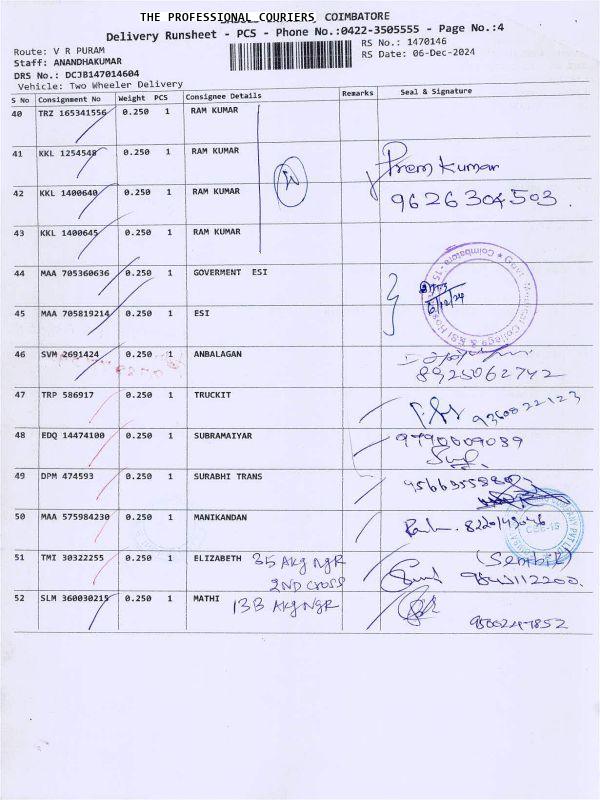 THE PROFESSIONAL COURIERS, COIMBATORE
Delivery Runsheet - PCS - Phone No.:0422-3505555 - Page No.:4
Route: V R PURAM
RS No.: 1470146
Staff: ANANDHAKUMAR
RS Date: 06-Dec-2024
DRS No.: DCJB147014604
Vehicle: Two Wheeler Delivery
S No Consignment No Weight PCS Consignee Details Remarks Seal & Signature
40 TRZ 165341556 0.250 1 RAM KUMAR
41 KKL 1254548 0.250 1 RAM KUMAR Prem Kumar
42 KKL 1400640 0.250 1 RAM KUMAR 9626304503.
43 KKL 1400645 0.250 1 RAM KUMAR
44 MAA 705360636 0.250 1 GOVERMENT ESI
6/12/24
45 MAA 705819214 0.250 1 ESI
46 SVM 2691424 0.250 1 ANBALAGAN
8925062742
47 TRP 586917 0.250 1 TRUCKIT 9360822123
48 EDQ 14474100 0.250 1 SUBRAMAIYAR
49 DPM 474593 0.250 1 SURABHI TRANS
50 MAA 575984230 0.250 1 MANIKANDAN
51 TMI 30322255 0.250 1 ELIZABETH 35 AKg NgR
2ND CROSS
52 SLM 360030215 0.250 1 MATHI 13B AKg NgR